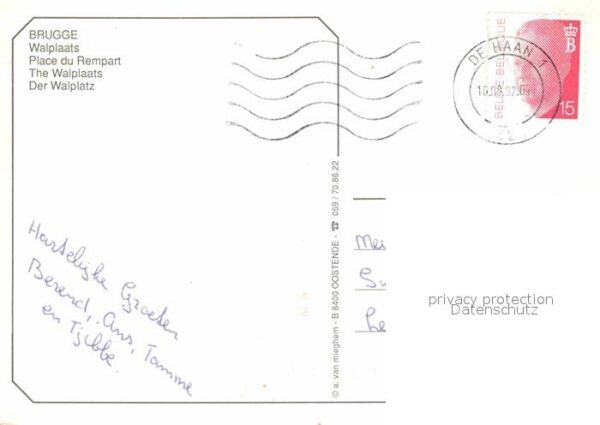 BRUGGE
Walplaats
Place du Rempart
The Walplaats
Der Walplatz
DE HAAN 1
BELGIE-BELGIQUE
B
15
© a. van mieghem - B 8400 OOSTENDE - ☎ 059 / 70.86.22
Hartelijke Groeten
Berend, Ans, Tamme
en Tjibbe.
privacy protection
Datenschutz